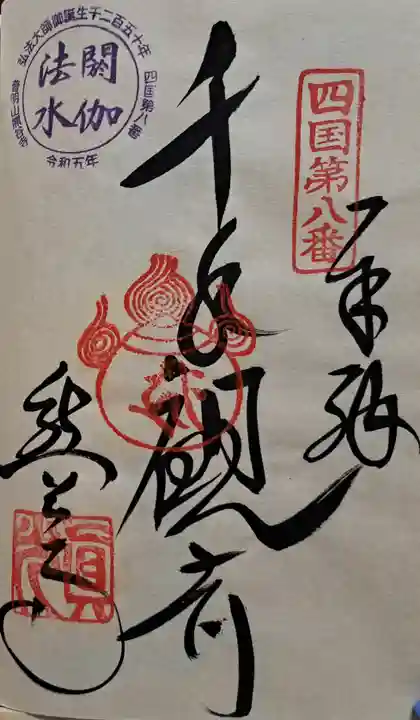 四国第八番
奉拝
千手観音
熊谷寺
弘法大師御誕生千二百五十年
四国第八番
普明山熊谷寺
閼伽
法水
令和五年